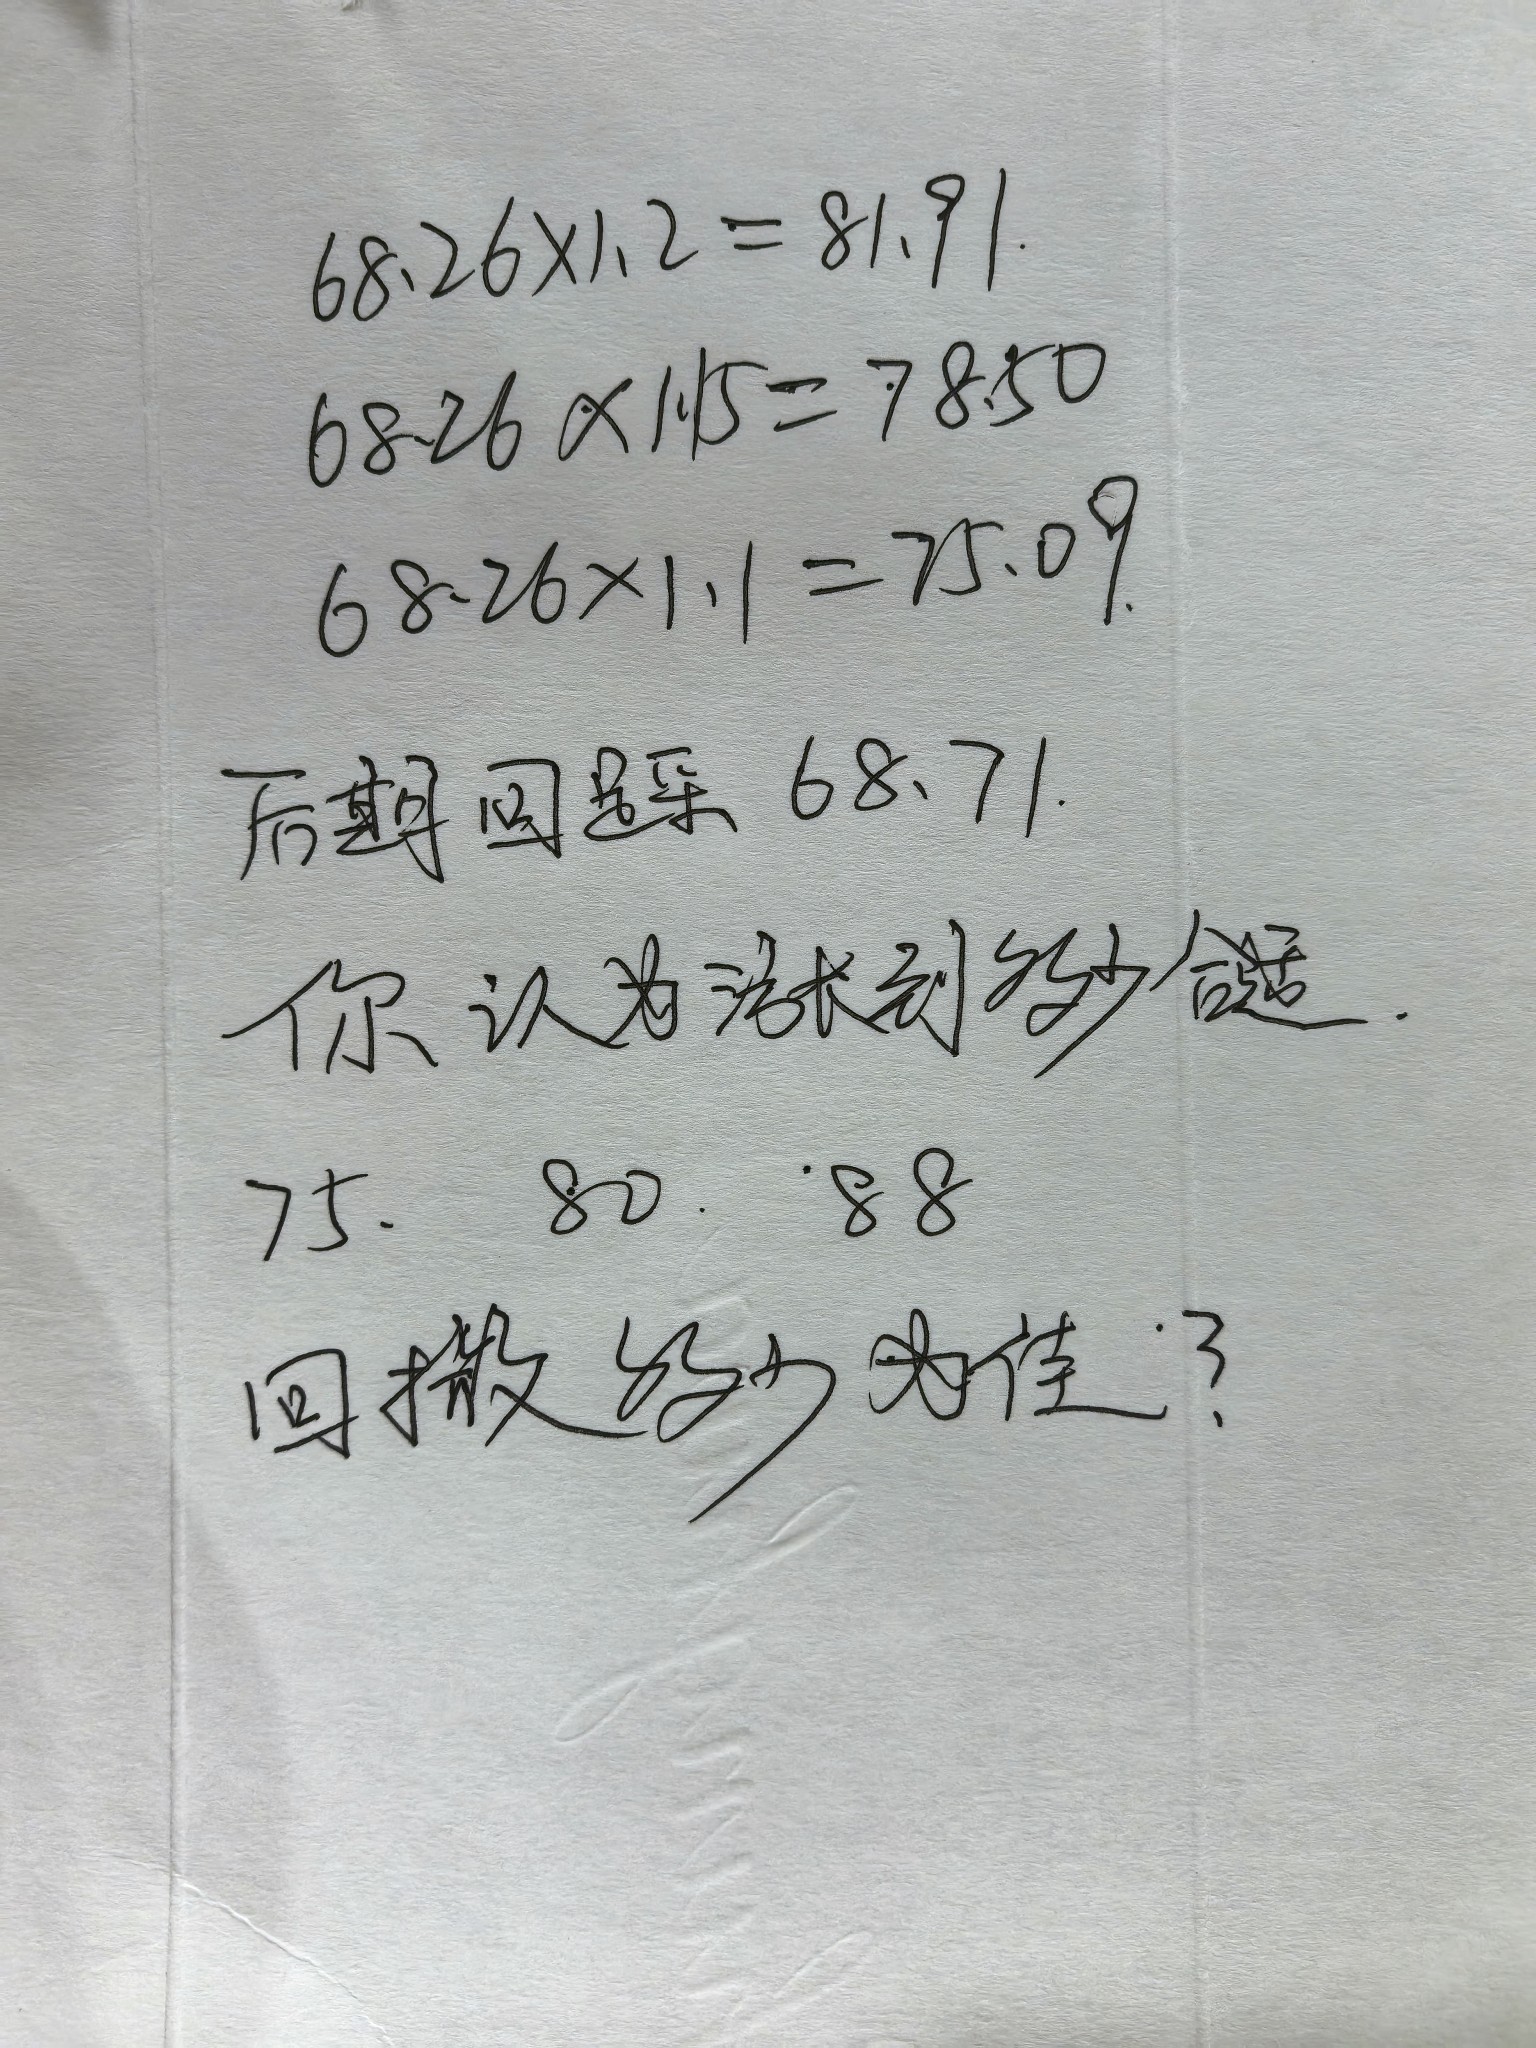 68.26×1.2=81.91.
68.26×1.15=78.50
68.26×1.1=75.09.
后期回踩 68.71.
你认为涨到多少合适.
75. 80. 88
回撤多少为佳?